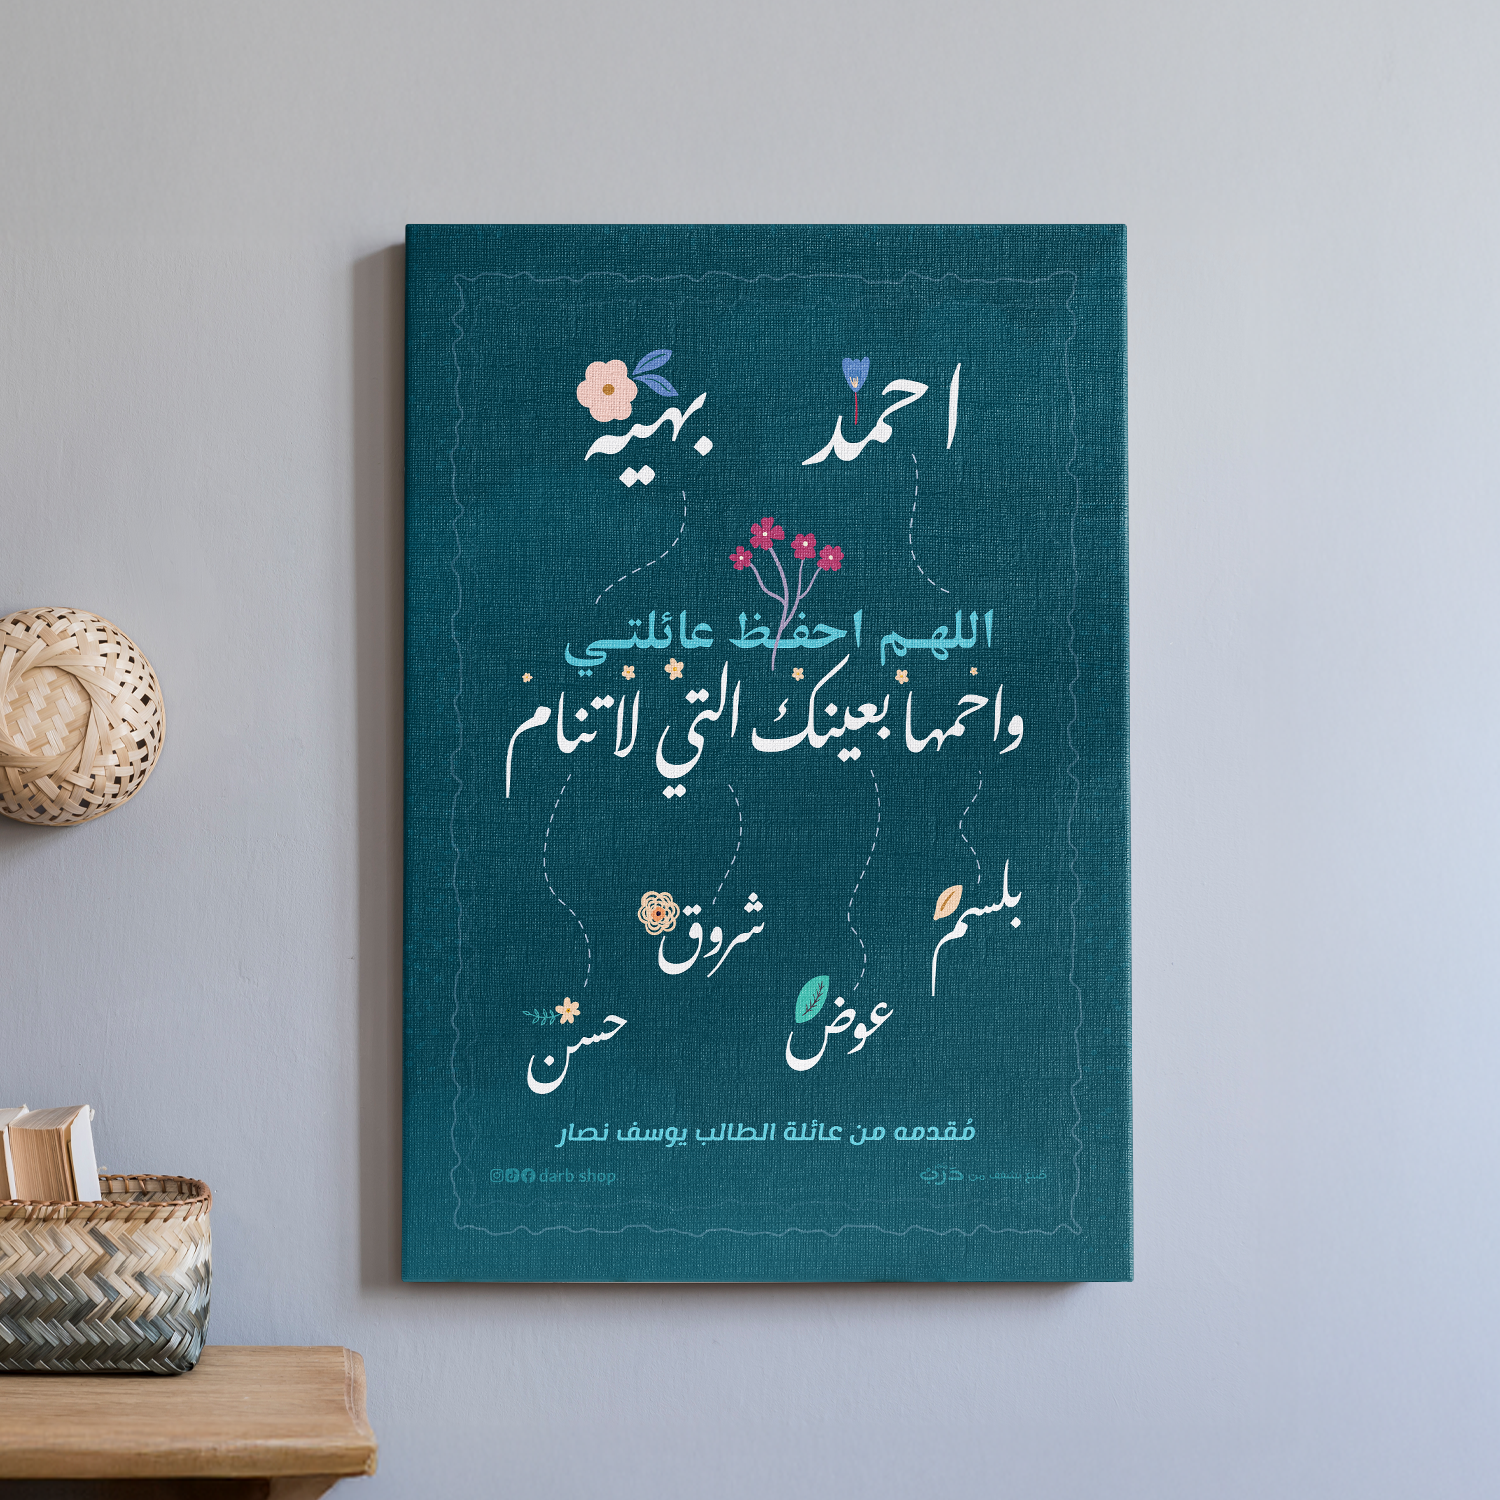 احمد بهيه
اللهم احفظ عائلتي
واحمها بعينك التي لا تنام
بلسم
شروق
عوض
حسن
مُقدمه من عائلة الطالب يوسف نصار
صُنع بشغف من دَرْبْ
darb shop